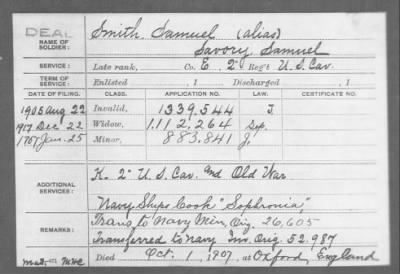 DEAD
NAME OF SOLDIER: Smith, Samuel (alias)
Savory, Samuel
SERVICE: Late rank, Co. E, 2" Reg't U.S. Cav.
TERM OF SERVICE: Enlisted , 1 Discharged , 1
DATE OF FILING. CLASS. APPLICATION NO. LAW. CERTIFICATE NO.
1905 Aug 22 Invalid, 1339.544
1907 Dec 22 Widow, 1.112.264 Sep.
Jan. 25 Minor, 883.841
ADDITIONAL SERVICES: K. 2" U.S. Cav. and Old War
Navy Ships Cook "Sophronia"
REMARKS: Trans to Navy Min. Orig. 26,605
Transferred to Navy Inv. Orig. 52.987
Died Oct. 1, 1907, at Oxford, England